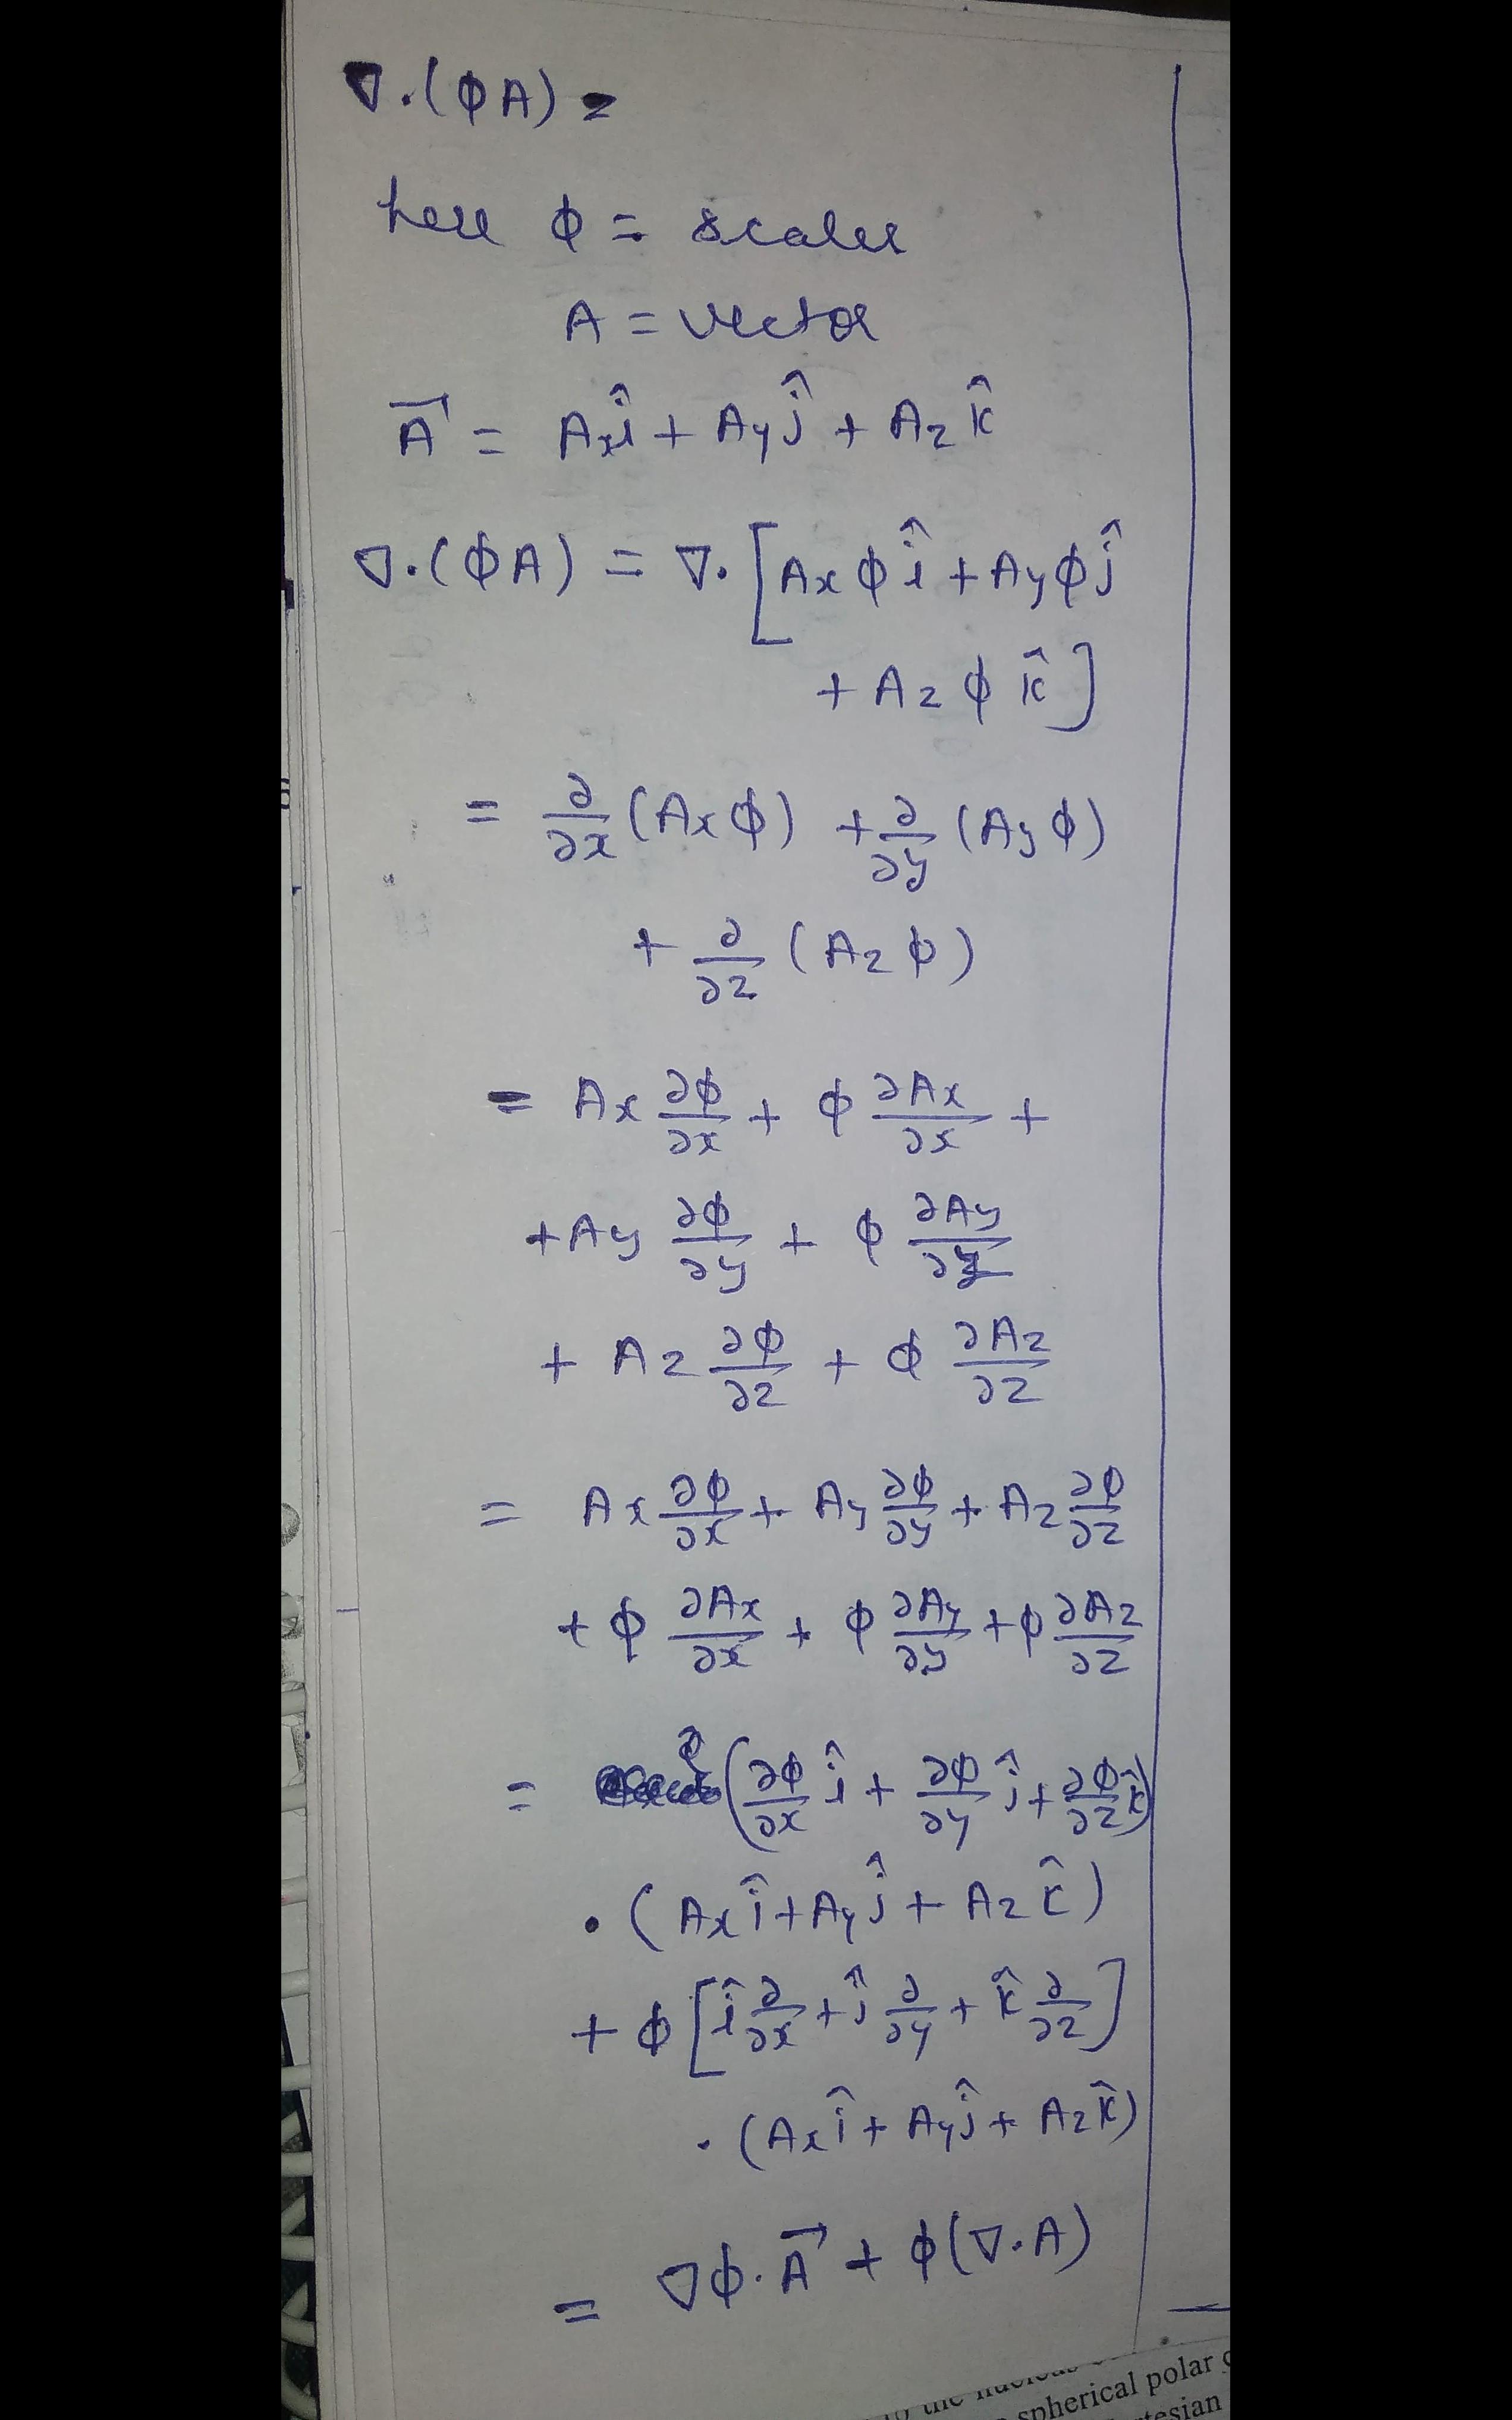 ∇.(ϕA) =
here ϕ = scaler
A = vector
A⃗ = Axî + Ayĵ + Azk̂
∇.(ϕA) = ∇.[Axϕî + Ayϕĵ
+ Azϕk̂]
= ∂/∂x (Axϕ) + ∂/∂y (Ayϕ)
+ ∂/∂z (Azϕ)
= Ax ∂ϕ/∂x + ϕ ∂Ax/∂x +
+ Ay ∂ϕ/∂y + ϕ ∂Ay/∂y
+ Az ∂ϕ/∂z + ϕ ∂Az/∂z
= Ax ∂ϕ/∂x + Ay ∂ϕ/∂y + Az ∂ϕ/∂z
+ ϕ ∂Ax/∂x + ϕ ∂Ay/∂y + ϕ ∂Az/∂z
= (∂ϕ/∂x î + ∂ϕ/∂y ĵ + ∂ϕ/∂z k̂)
. (Axî + Ayĵ + Azk̂)
+ ϕ [î ∂/∂x + ĵ ∂/∂y + k̂ ∂/∂z]
. (Axî + Ayĵ + Azk̂)
= ∇ϕ.A⃗ + ϕ(∇.A)
the
spherical polar